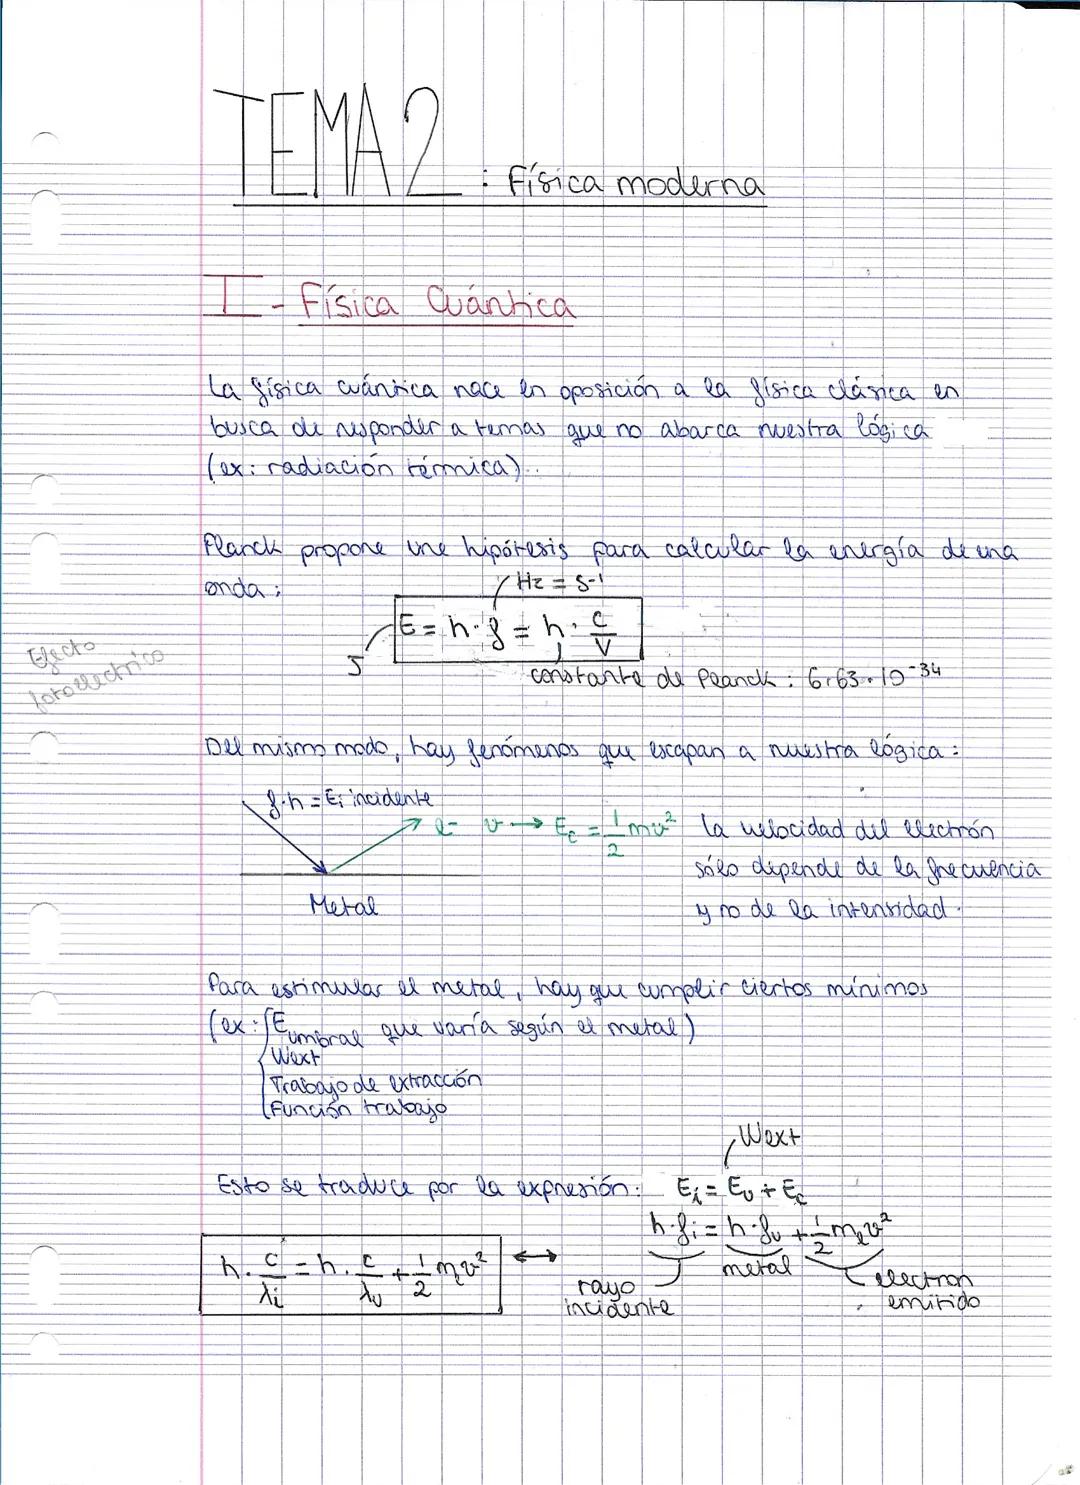 TEMA 2 : Física moderna
I - Física Cuántica
La física cuántica nace en oposición a la física clásica en
busca de responder a temas que no abarca nuestra lógica
(ex: radiación térmica)..
Planck propone une hipótesis para calcular la energía de una
onda :
Hz = s-1
E = h·f = h · c/V
J
constante de Planck : 6,63·10^-34
Efecto
fotoelectrico
Del mismo modo, hay fenómenos que escapan a nuestra lógica :
f·h = Ei incidente
e- v → Ec = 1/2 mv² La velocidad del electrón
sólo depende de la frecuencia
Metal
y no de la intensidad.
Para estimular el metal, hay que cumplir ciertos mínimos
(ex: { Eumbral que varía según el metal)
Wext
Trabajo de extracción
Función trabajo
Wext
Esto se traduce por la expresión: Ei = Eu + Ec
h·fi = h·fu + 1/2 me v²
h · c/λi = h · c/λu + 1/2 me v² ↔
rayo
incidente
metal
electron
emitido